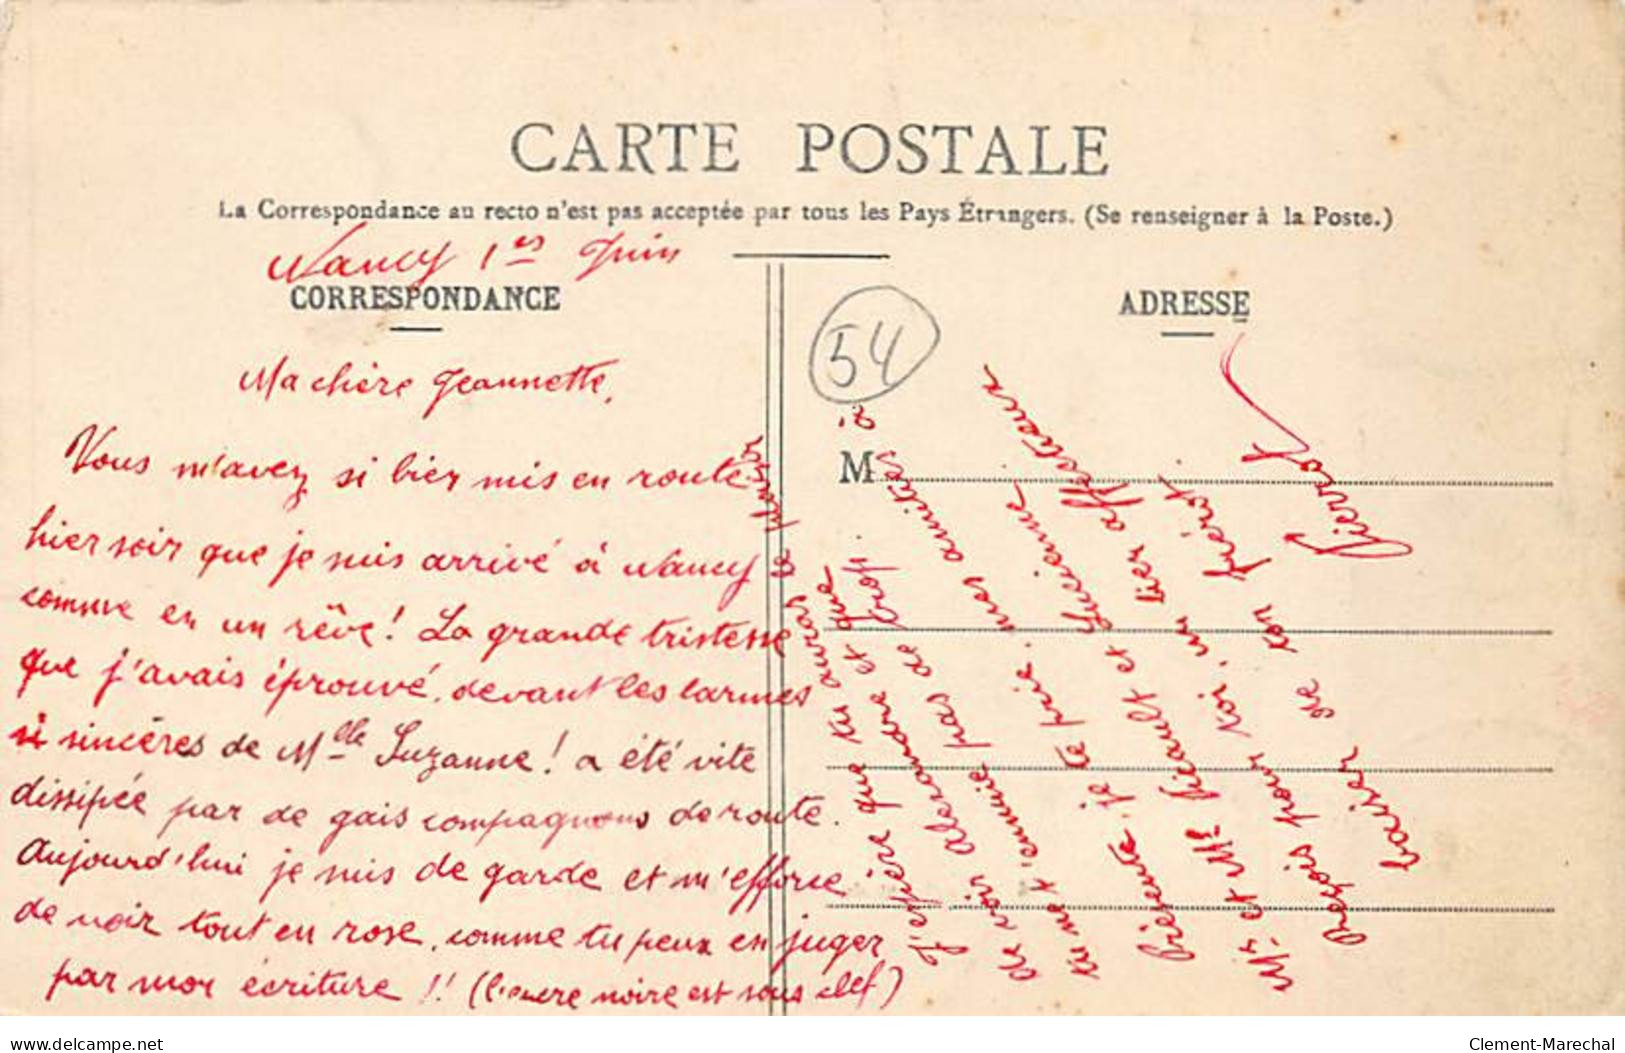 CARTE POSTALE
La Correspondance au recto n'est pas acceptée par tous les Pays Étrangers. (Se renseigner à la Poste.)
Nancy 1er Juin
CORRESPONDANCE
Ma chère Jeannette,
Vous m'avez si bien mis en route
hier soir que je suis arrivé à Nancy
comme en un rêve! La grande tristesse
que j'avais éprouvé devant les larmes
si sincères de Melle Suzanne! a été vite
dissipée par de gais compagnons de route.
Aujourd'hui je suis de garde et m'efforce
de voir tout en rose, comme tu peux en juger
par mon écriture !! (l'encre noire est sous clef)
ADRESSE
54
M
J'espère que tu auras le plaisir
de voir Alexandre et que
tu ne t'ennuie pas de trop.
Présente, je te prie, mes amitiés à
Mr et Me et Lucienne
Reçois pour toi, un bien affectueux
baiser de ton frérot.
Pierrot
Clement-Marechal
delcampe.net